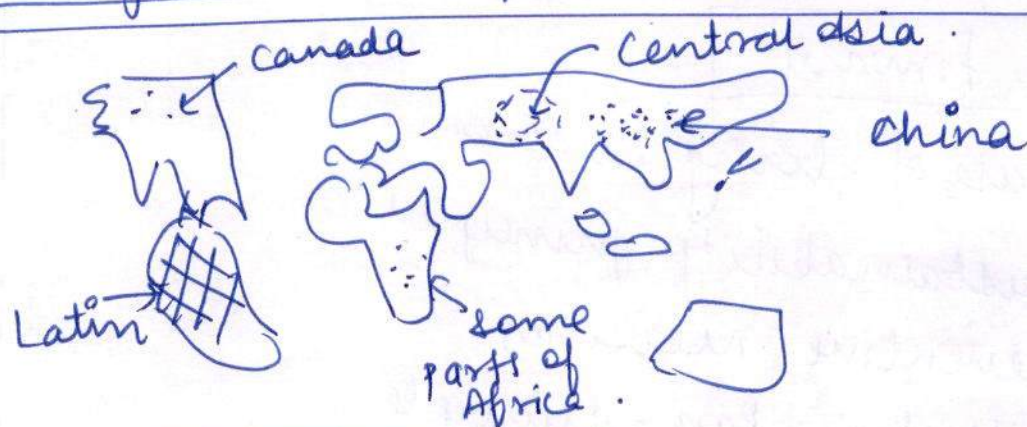 Canada
Central Asia .
China
Latin
some
parts of
Africa .